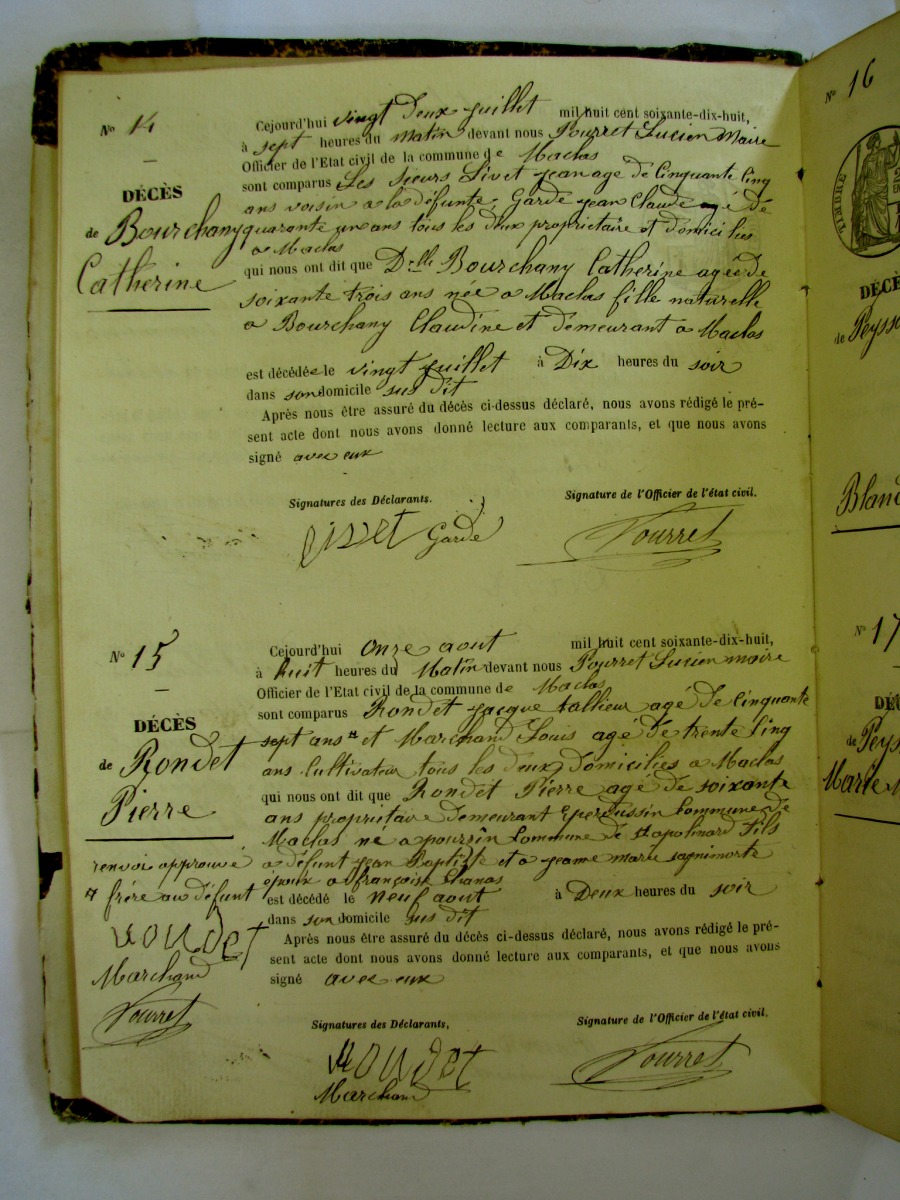 N° 14
DÉCÈS
de Bourchany
Catherine
Cejourd'hui vingt Deux juillet mil huit cent soixante-dix-huit,
à sept heures du matin devant nous Pourret Lucien Maire
Officier de l'Etat civil de la commune de Maclas
sont comparus Les sieurs Livet jean age de Cinquante Cinq
ans voisin a la défunte, Garde jean Claude agé de
quarante un ans tous les deux proprietaire et domicilies
a Maclas
qui nous ont dit que Dlle Bourchany Catherine agée de
soixante trois ans née a Maclas fille naturelle
a Bourchany Claudine et demeurant a Maclas
est décédée le vingt juillet à Dix heures du soir
dans son domicile sus dit
Après nous être assuré du décès ci-dessus déclaré, nous avons rédigé le pré-
sent acte dont nous avons donné lecture aux comparants, et que nous avons
signé avec eux
Signatures des Déclarants. Signature de l'Officier de l'état civil.
Garde Pourret
N° 15
DÉCÈS
de Rondet
Pierre
renvoi approuvé
# frére au défunt
Rondet
Marchand
Pourret
Cejourd'hui onze aout mil huit cent soixante-dix-huit,
à huit heures du Matin devant nous Pourret Lucien maire
Officier de l'Etat civil de la commune de Maclas
sont comparus Rondet jacque tallieur agé de Cinquante
sept ans # et Marchand Louis agé de trente Cinq
ans Cultivateur tous les deux domicilies a Maclas
qui nous ont dit que Rondet Pierre agé de soixante
ans propriétaire demeurant Eperdussin Commune de
Maclas né a pourrin Commune de St apolinard fils
a défunt jean Baptiste et a jeanne marie sagnimorte
époux a françoise Chanas
est décédé le neuf aout à Deux heures du soir
dans son domicile sus dit
Après nous être assuré du décès ci-dessus déclaré, nous avons rédigé le pré-
sent acte dont nous avons donné lecture aux comparants, et que nous avons
signé avec eux
Signatures des Déclarants, Signature de l'Officier de l'état civil.
Rondet Pourret
Marchand
N° 16
TIMBRE
DÉCÈ
de Peyss
Bland
N° 17
DÉC
de Peys
Marie